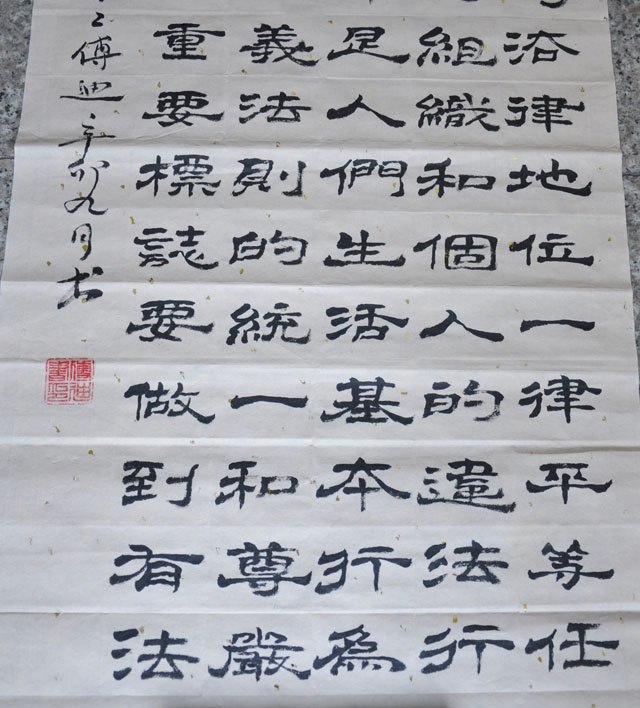 沿律地位一律平等任
組織和個人的違法行
是人們生活基本行為
義法則的統一和尊嚴
重要標誌要做到有法
傅迪辛卯九月书
傅迪書印